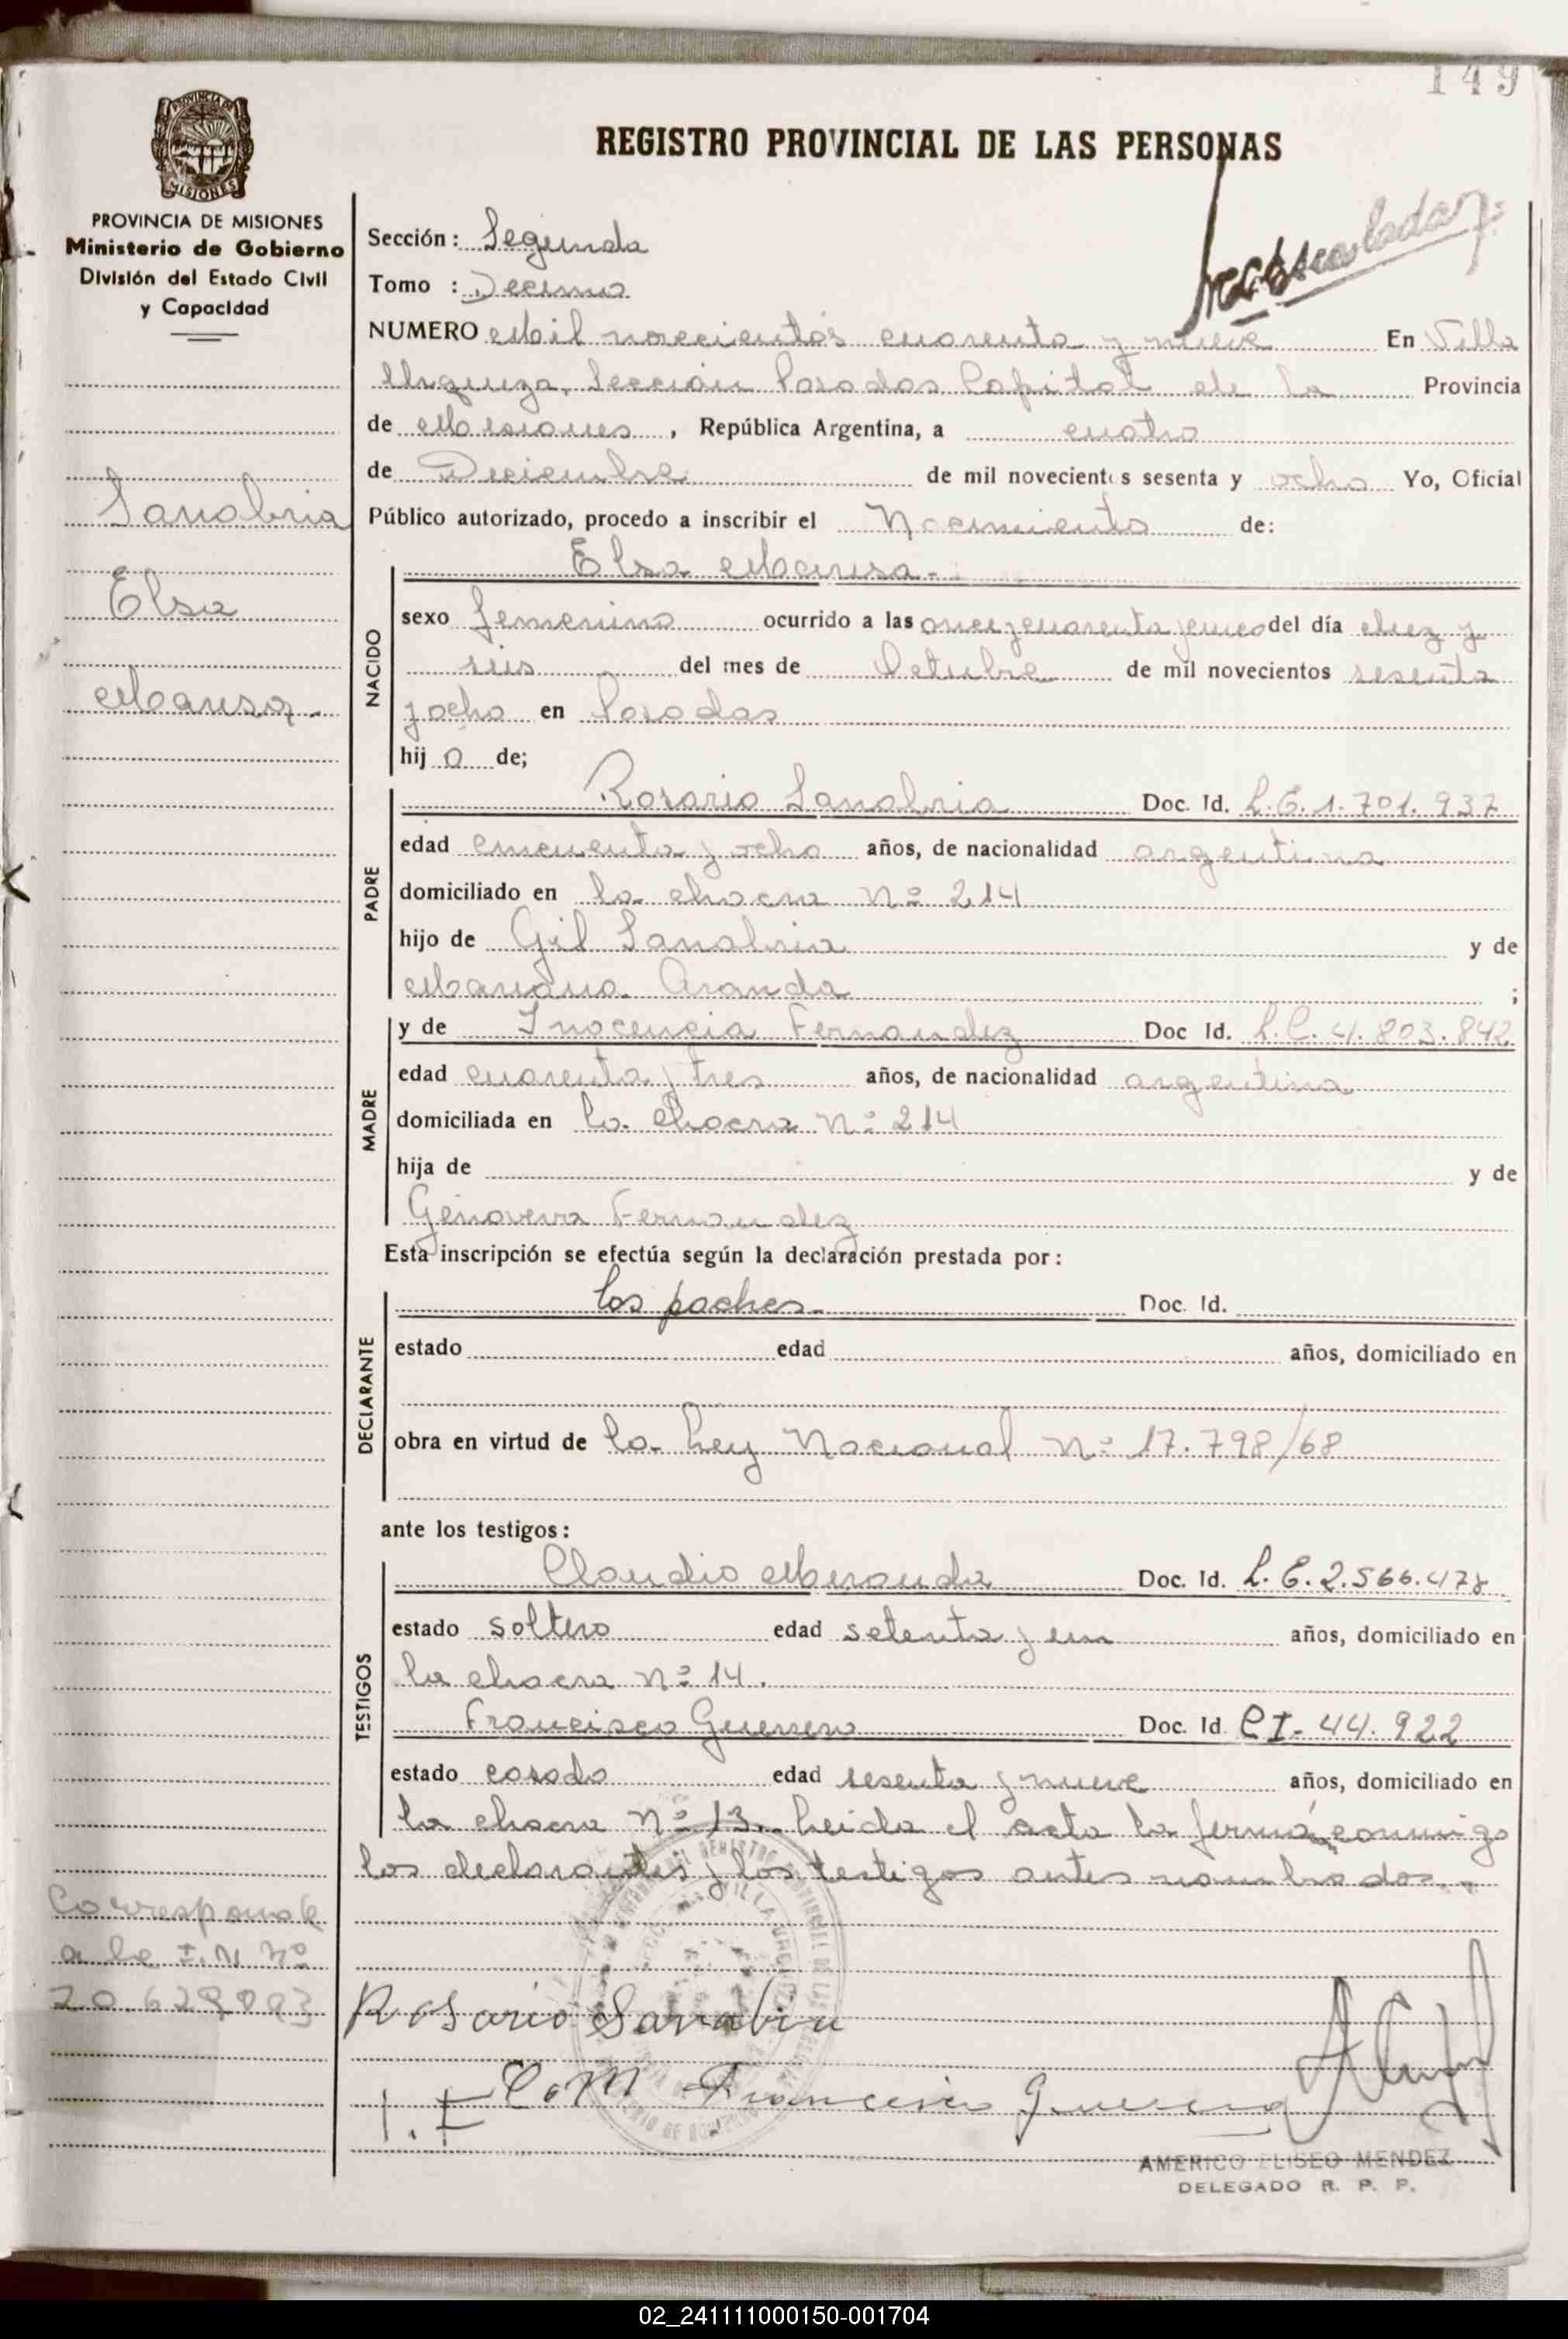 149
REGISTRO PROVINCIAL DE LAS PERSONAS
PROVINCIA DE MISIONES
Ministerio de Gobierno
División del Estado Civil
y Capacidad
Sección: Segunda
Tomo : Decimo
NUMERO Mil novecientos cuarenta y nueve En Villa
Urquiza, Sección Posadas Capital de la Provincia
de Misiones, República Argentina, a cuatro
de Diciembre de mil novecientos sesenta y ocho Yo, Oficial
Público autorizado, procedo a inscribir el Nacimiento de:
Sanabria
Elsa
Marisa.
NACIDO
Elsa Marisa.
sexo femenino ocurrido a las once y cuarenta y cinco del día diez y
seis del mes de Octubre de mil novecientos sesenta
y ocho en Posadas
hij a de;
PADRE
Rosario Sanabria Doc. Id. L.E. 1.701.937
edad cincuenta y ocho años, de nacionalidad argentina
domiciliado en la chacra Nº 214
hijo de Gil Sanabria y de
Mariana Aranda ;
MADRE
y de Inocencia Fernandez Doc Id. L.C. 4.803.842
edad cuarenta y tres años, de nacionalidad argentina
domiciliada en la chacra Nº 214
hija de y de
Genoveva Fernandez
Esta inscripción se efectúa según la declaración prestada por:
DECLARANTE
los padres. Doc. Id.
estado edad años, domiciliado en
obra en virtud de la Ley Nacional Nº 17.798/68
ante los testigos:
TESTIGOS
Claudio Miranda Doc. Id. L.E. 2.566.478
estado soltero edad setenta y un años, domiciliado en
la chacra Nº 14.
Francisco Guerrero Doc. Id. CI- 44.922
estado casado edad sesenta y nueve años, domiciliado en
la chacra Nº 13. Leida el acta la firman conmigo
los declarantes y los testigos antes nombrados.
Corresponde
a la I.N Nº
20.629.003
Rosario Sanabria
C. M Francisco Guerrero
AMERICO ELISEO MENDEZ
DELEGADO R. P. P.
02_241111000150-001704